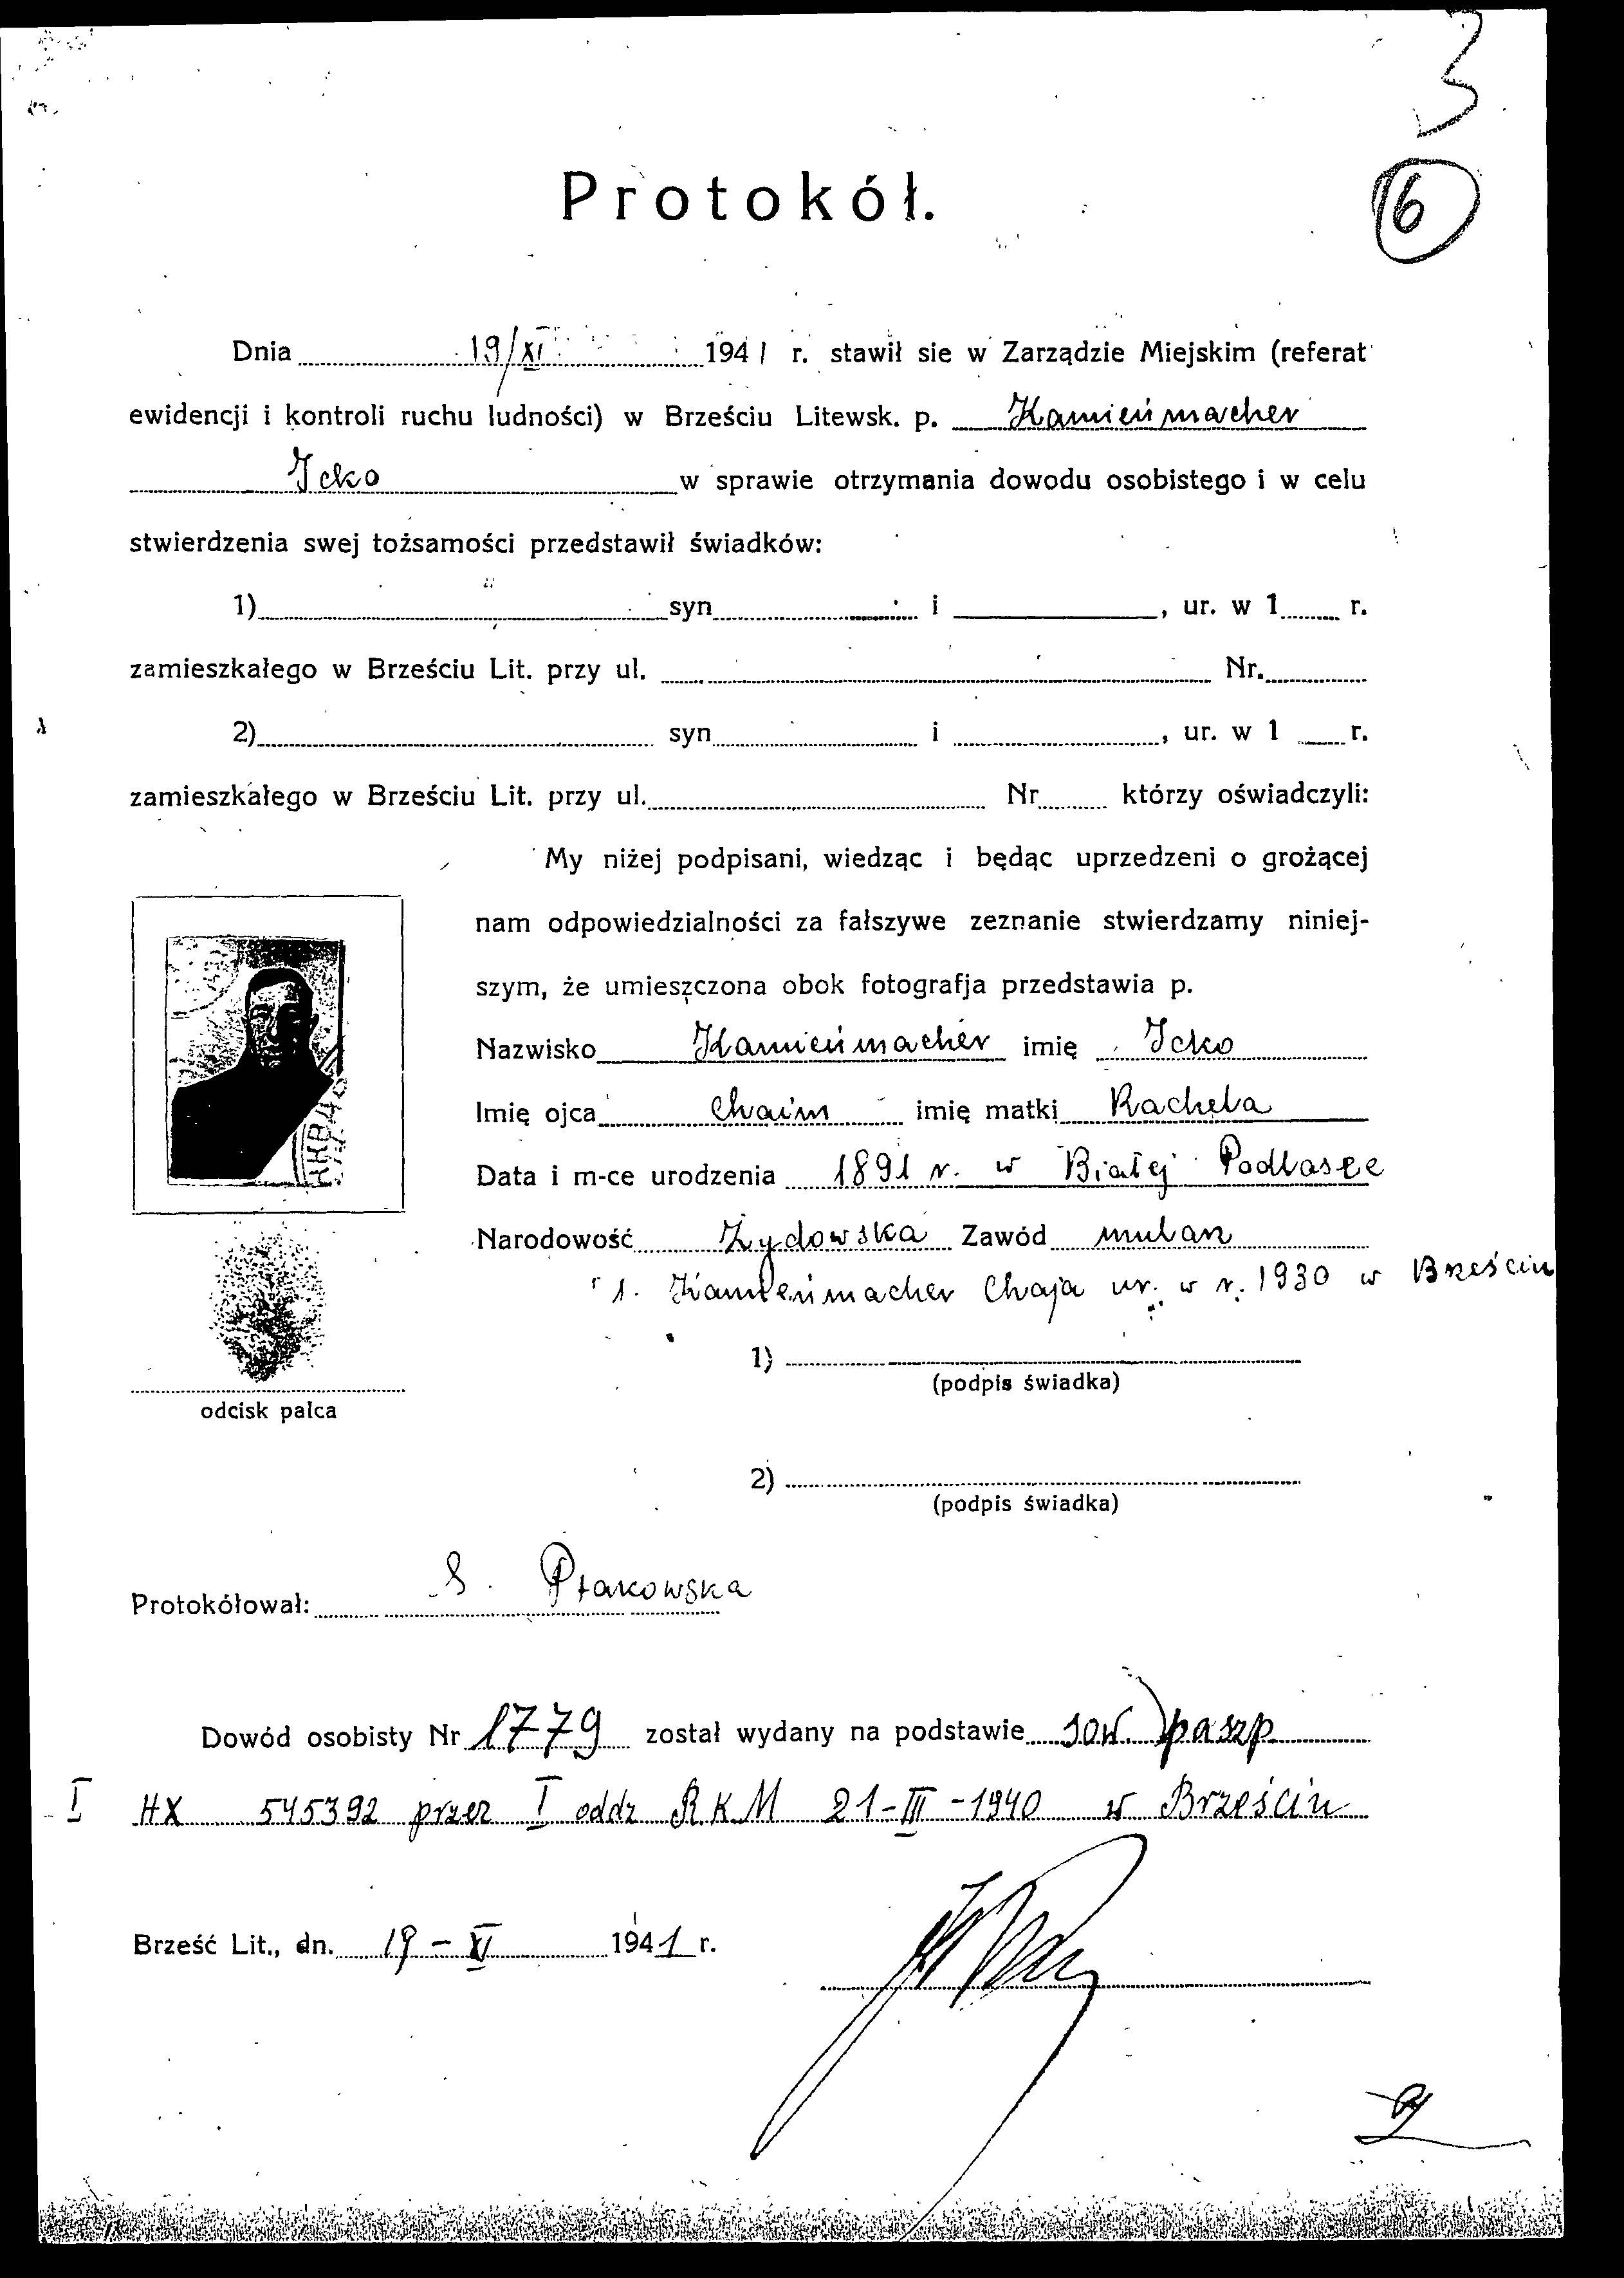 3
6
Protokół.
Dnia 19/XI 1941 r. stawił sie w Zarządzie Miejskim (referat
ewidencji i kontroli ruchu ludności) w Brześciu Litewsk. p. Kamieńmacher
Icko w sprawie otrzymania dowodu osobistego i w celu
stwierdzenia swej tożsamości przedstawił świadków:
1) syn i , ur. w 1 r.
zamieszkałego w Brześciu Lit. przy ul. Nr.
2) syn i , ur. w 1 r.
zamieszkałego w Brześciu Lit. przy ul. Nr którzy oświadczyli:
My niżej podpisani, wiedząc i będąc uprzedzeni o grożącej
nam odpowiedzialności za fałszywe zeznanie stwierdzamy niniej-
szym, że umieszczona obok fotografja przedstawia p.
Nazwisko Kamieńmacher imię Icko
Imię ojca Chaim imię matki Rachela
Data i m-ce urodzenia 1891 r. w Białej Podlasce
Narodowość Żydowska Zawód mularz
1. Kamieńmacher Chaja ur. w r. 1930 w Brześciu
1)
(podpis świadka)
odcisk palca
2)
(podpis świadka)
Protokółował: S. Ptakowska
Dowód osobisty Nr 1779 został wydany na podstawie sow. paszp.
I HX 545392 przez I oddz R.K.M 21-III-1940 w Brześciu
Brześć Lit., dn. 19-XI 1941 r.